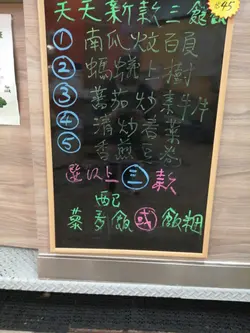 天天新款三餸 $45
① 南瓜炆百頁
② 螞蟻上樹
③ 蕃茄炒素牛片
④ 清炒春菜
⑤ 香煎豆
選以上三款
配
藜麥飯或飯糰